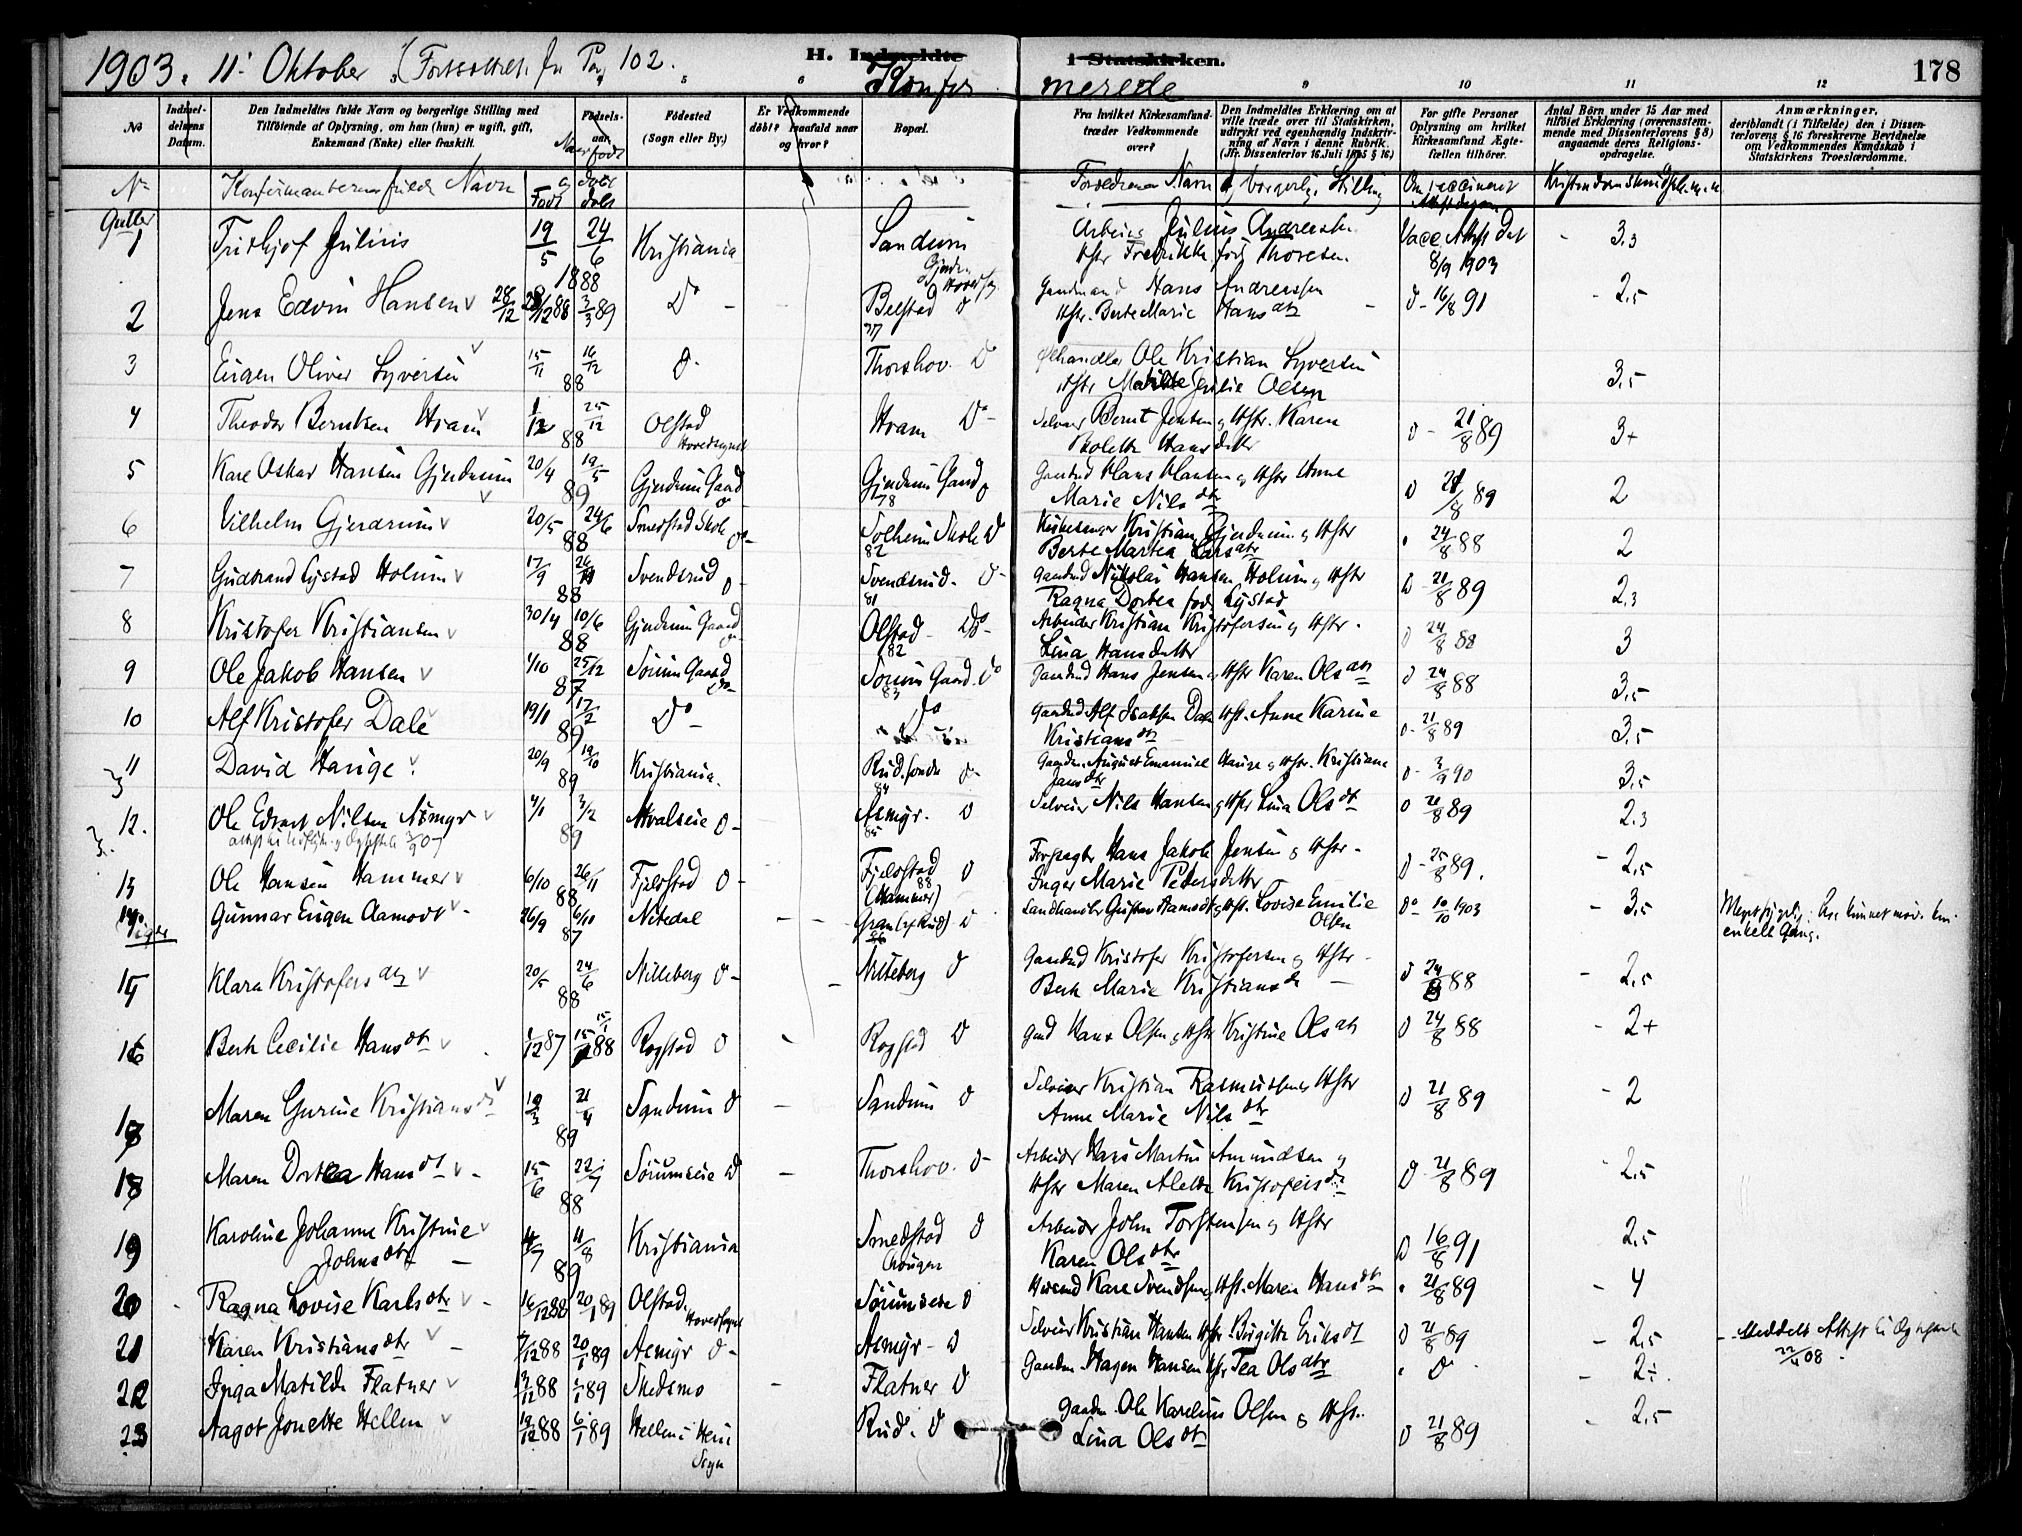 1903. 11. Oktober (Forsættes. fr. Pag 102.
H. Indmeldte i Statskirken.
Konfirmerede
178
5 6 9 10 11 12
No
Indmel-
delsens
Datum.
Den Indmeldtes fulde Navn og borgerlige Stilling med
Tilføiende af Oplysning, om han (hun) er ugift, gift,
Enkemand (Enke) eller fraskilt.
Fødsels-
aar.
Naar født
Fødested
(Sogn eller By.)
Er Vedkommende
døbt? Isaafald naar
og hvor?
Bopæl.
Fra hvilket Kirkesamfund
træder Vedkommende
over?
Den Indmeldtes Erklæring om at
ville træde over til Statskirken,
udtrykt ved egenhændig Indskriv-
ning af Navn i denne Rubrik.
(Jfr. Dissenterlov 16 Juli 1845 § 16)
For gifte Personer
Oplysning om hvilket
Kirkesamfund Ægte-
fællen tilhører.
Antal Børn under 15 Aar med
tilføiet Erklæring (overensstem-
mende med Dissenterlovens § 8)
angaaende deres Religions-
opdragelse.
Anmærkninger,
deriblandt (i Tilfælde) den i Dissen-
terlovens § 16 foreskrevne Bevidnelse
om Vedkommendes Kundskab i
Statskirkens Troeslærdomme.
No Konfirmanternes fulde Navn Født døbt Forældrenes Navn og borgerlig Stilling Om vaccineret
Gutter
1 Fridhjof Julius 19/5 24/6 1888 Kristiania Sandum Gjerdr. Hovedsogn Arbeider Julius Andreassen Hstr Fredrikke født Thoresen Vacc. Attst dat 8/9 1903 3.3
2 Jens Edvin Hansen v 28/12 28/12 88 3/3 89 Do - Bolstad d 77 Gaardmand Hans Andreassen Hstr. Berte Marie Hansdtr d - 16/8 91 - 2,5
3 Eugen Oliver Syversen v 15/11 16/12 88 d- Thorshov. D Ole Kristian Syversen Hstr Matilde Julie Olsen 3,5
4 Theodor Berntsen Hram v 1/12 25/12 88 Olstad Hovedsognet Hram Do - Selveier Bernt Jensen og Hstr. Karen Bolette Hansdatter d - 21/8 89 3+
5 Karl Oskar Hansen Gjerdrum v 20/4 19/5 89 Gjerdrum Gaard d Gjerdrum Gaard d 78 Gaardmd Hans Hansen og Hstr Anne Marie Nilsdtr D 21/8 89 2
6 Vilhelm Gjerdrum v 20/5 24/6 88 Smedstad Skole do- Solheim Skole D 82 Kirkesanger Kristian Gjerdrum og Hstr Berte Martea Larsdtr " 24/8 88 2
7 Gudbrand Lystad Holum v 17/9 26/11 88 Svendsrud d- Svendsrud- d- 81 Gaardmd Nikolai Hansen Holum og Hstr Ragna Dortea født Lystad D 21/8 89 2.3
8 Kristofer Kristiansen v 30/4 10/6 88 Gjerdrum Gaard d- Olstad - Do- 82 Arbeider Kristian Kristofersen og Hstr - Lina Hansdatter d 24/8 88 3
9 Ole Jakob Hansen v 1/10 25/12 87 Sørum Gaard do- Sørum Gaard. Do 83 Gaardmd Hans Jensen og Hstr Karen Olsdtr d 24/8 88 3,5
10 Alf Kristofer Dale v 19/1 17/2 89 Do - Do Gaardmd Alf Isaksen Dale Hst. Anne Karine Kristiansdtr d- 21/8 89 3,5
11 David Hauge. v 20/9 19/10 89 Kristiania. Rud. søndre d- 84 Gaardm. August Emanuel Hauge og Hstr. Kristiane Jansdtr d- 3/9 90 3,5
12. Ole Edvart Nilsen Asmyr v 4/1 3/2 89 Hvalseie d- Asmyr. D 85 Selveier Nils Hansen og Hstr Lina Olsdtr d 21/8 89 2.3
13 Ole Hansen Hammer v 6/10 26/11 88 Fjelstad d- Fjelstad d 88 (Hammer) Forpagter Hans Jakob Jensen og Hstr - Inger Marie Petersdatter d - 25/8 89. - 2,5
14 Gunnar Eugen Aamodt v - 26/9 6/11 87 Nitedal - - Gran (af Rud) D 86 Landhandler Gustav Aamodt og Hst. Lovise Emilie Olsen Do 10/10 1903 - 3,5 enkelt Gang.
Piger
15 Klara Kristofersdtr v 20/5 24/6 88 Nilleberg d- - Nilleberg d Gaardmd Kristofer Kristofersen og Hstr - Berte Marie Kristiansdtr - d 24/8 88 - 2,5
16 Berte Cecilie Hansdtr v 1/12 87 15/1 88 Rogstad d - Rogstad D Gmd Hans Olsen og Hstr Kristine Olsdtr d 24/8 88 - 2+
17 Maren Gurine Kristiansdtr v 19/3 21/4 89 Sandum d - Sandum d Selveier Kristian Rasmussen og Hstr Anne Marie Nilsdtr d 21/8 89 - 2
18 Maren Dortea Hansdtr v - 15/6 22/7 88 Sørumseie D - Thorshov. d- Arbeider Hans Martin Amundsen og Hstr Maren Alette Kristofersdtr d - 21/8 89 - 2,5
19 Karoline Johanne Kristine v Johnsdtr - 4/7 11/8 89 Kristiania Smedstad d Arbeider John Torstensen og Hstr Karen Olsdtr D 16/8 91 2,5
20 Ragna Lovise Karlsdtr v - 16/12 88 20/1 89 Olstad. Hovedsognet Sørumseie d Husmd Karl Svendsen og Hst. Maren Hansdtr " 21/8 89 - 4
21 Karen Kristiansdtr v - 7/12 88 20/1 89 Asmyr d- Asmyr - D Selveier Kristian Hansen Hstr - Birgitte Eriksdtr d 21/8 89 - 2,5 - Meddelt Attest til Ægteskab 22/4 08 -
22 Inga Matilde Flatner v 13/12 88 2/1 89 Skedsmo - Flatner d Gaardm. Hagen Hansen Hstr Tea Olsdtr " do - 2÷.
23 Aagot Jonette Hellen v 19/12 88 6/1 89 Hellen i Hem Sogn Rud. d Gaardm. Ole Karelius Olsen og Hstr. Lina Olsdtr d 21/8 89 - 2,5